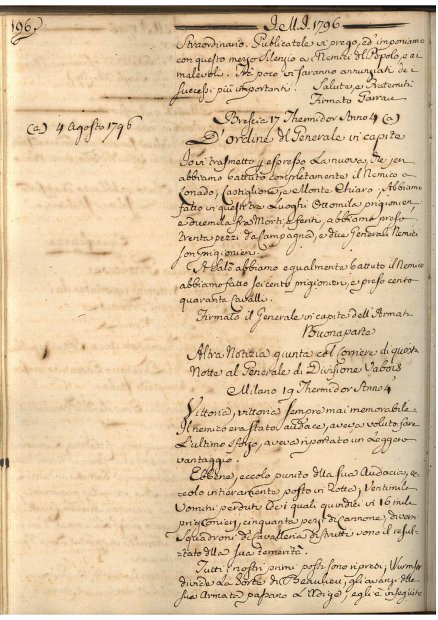 196.
I.M.I. 1796
Straordinario. Publicatele vi prego, ed imponiamo
con questo mezzo Silenzio a i Nemici del Popolo, e ai
malevoli. Frà poco vi saranno annunziati dei
successi più importanti. Salute, e Fraternità
Firmato Sarrau
(a) 4 Agosto 1796
Brescia 17 Thermidor Anno 4 (a)
D'ordine del Generale in Capite
Io vi trasmetto p espresso la nuova, che jeri
abbiamo battuto completamente il Nemico a
Lonado, Castiglione, e Monte Chiaro; Abbiamo
fatto in questi tre Luoghi Ottomila prigionieri,
e duemila frà Morti, e feriti, abbiamo preso
trenta pezzi da Campagna, e due Generali Nemici
son prigionieri.
A Salò abbiamo egualmente battuto il Nemico
abbiamo fatto seicento prigionieri, e preso cento
quaranta Cavalli.
Firmato il Generale in capite dell'Armata
Buonaparte
Altra Notizia giunta col Corriere di questa
Notte al Generale di Divisione Vabois
Milano 19 Thermidor Anno 4
Vittoria, vittoria sempre mai memorabile.
Il nemico era stato audace, aveva voluto fare
l'ultimo sforzo, aveva riportato un Leggero
vantaggio.
Ebbene, eccolo punito della sua Audacia, ec-
colo intieramente posto in Rotta; Ventimila
Uomini perduti de i quali quindici in 16 mila
prigionieri, cinquanta pezzi di Cannone, diversi
Squadroni di Cavalleria distrutti sono il resul-
tato della sua temerità.
Tutti i nostri primi posti sono ripresi; Wurmser
divide la sorte di Beaulieu, gli avanzi della
sua Armata passano l'Adige; egli è inseguito